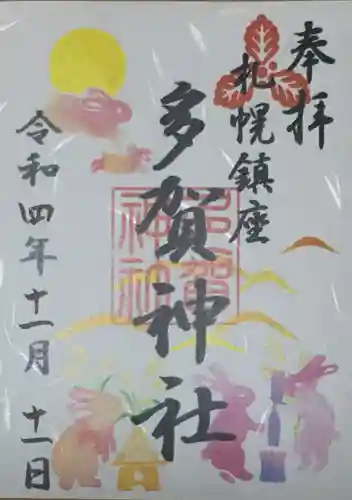 奉拝
札幌鎮座
多賀神社
多賀
神社
令和四年十一月十一日